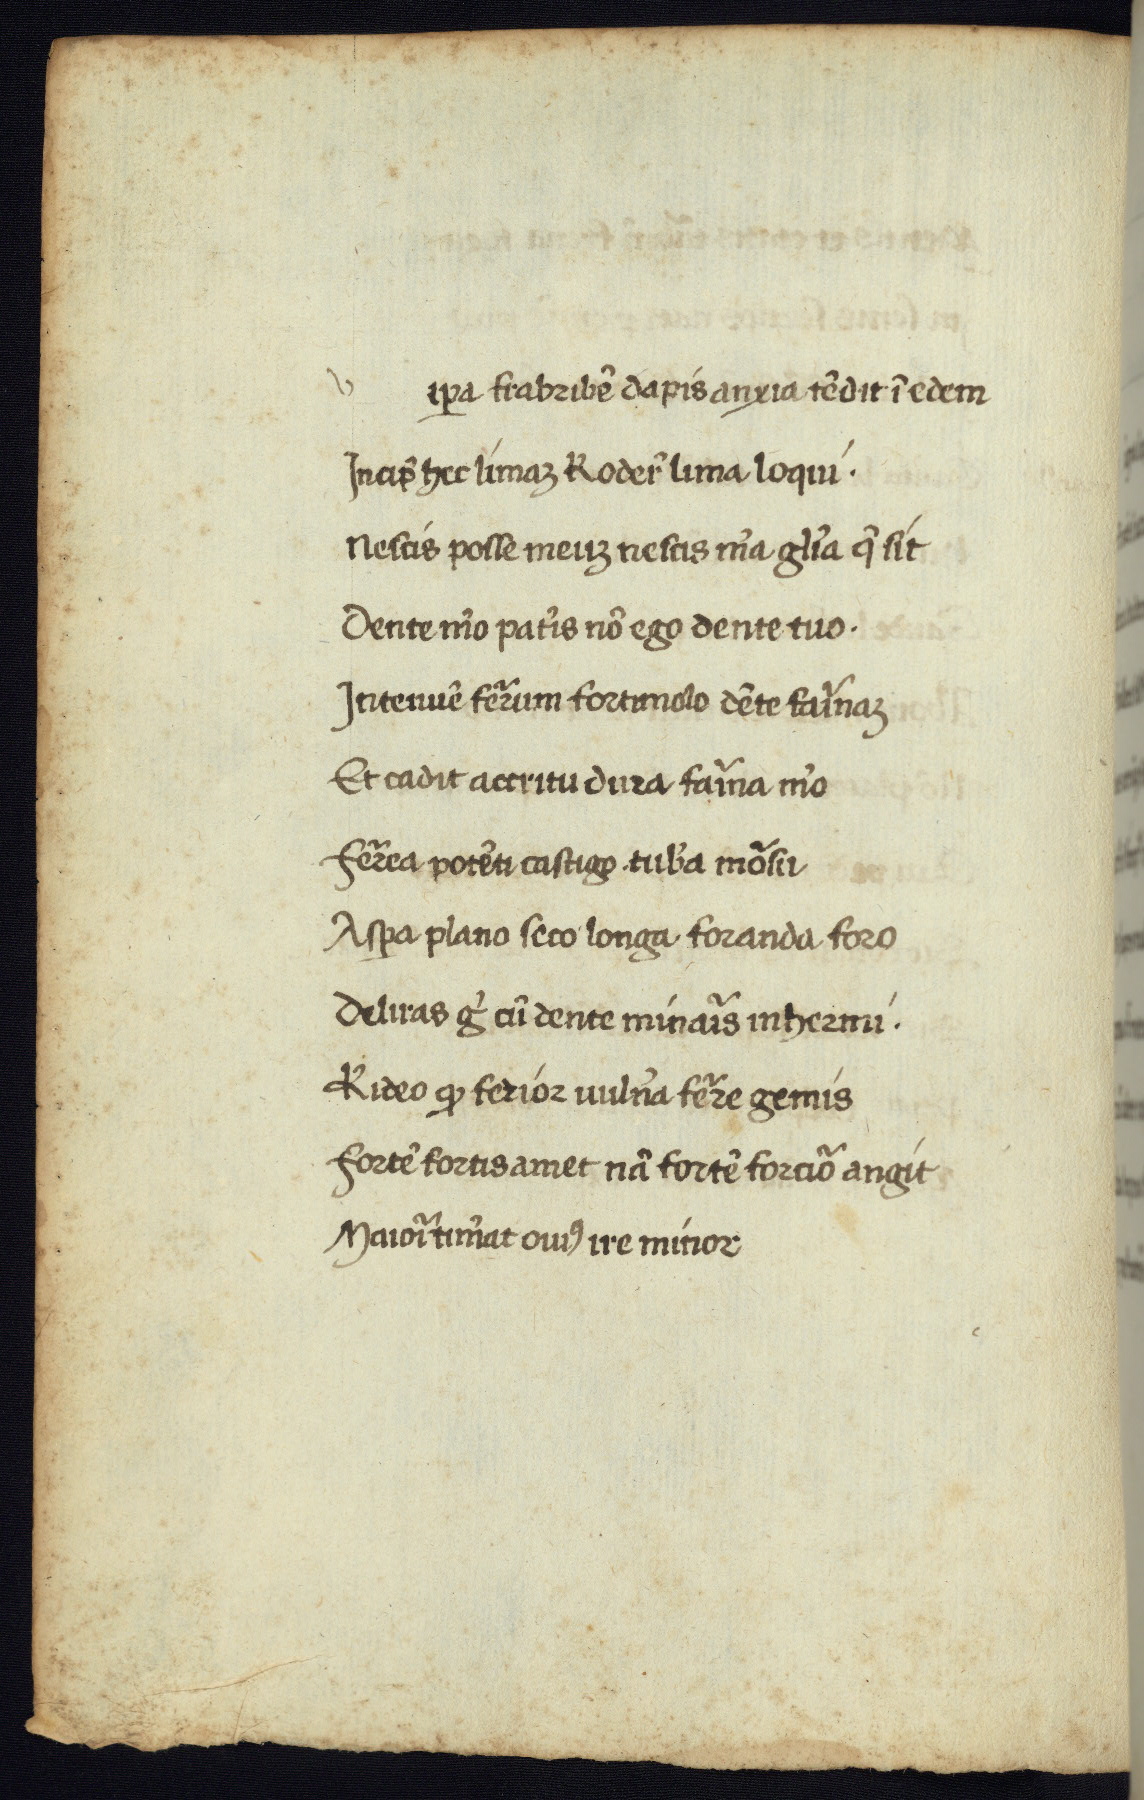 v ip̲a frabribē dapis anxia tēdit ī edem
Incip̄ hec limaꝫ Rodeꝛ̄ lima loqui.
Nescis posse meuꝫ nescis m̄a gl̄ia q̄ sit
Dente m̄o pat̄is nō ego dente tuo.
In tenuē fer̄um fortimolo dēte far̄inaꝫ
Et cadit accritu dura far̄ina m̄o
ferrea potēti castigo tub̄a mor̄su
Asp̲a plano seco longa foranda foro
Deliras g̊ cū dente minar̄is inhermi.
Rideo ꝙ ferior uuln̄a fer̄re gemis
fortē fortis amet nā fortē forcior̄ angit
Maior̄i tim̄at ouiꝰ ire minor